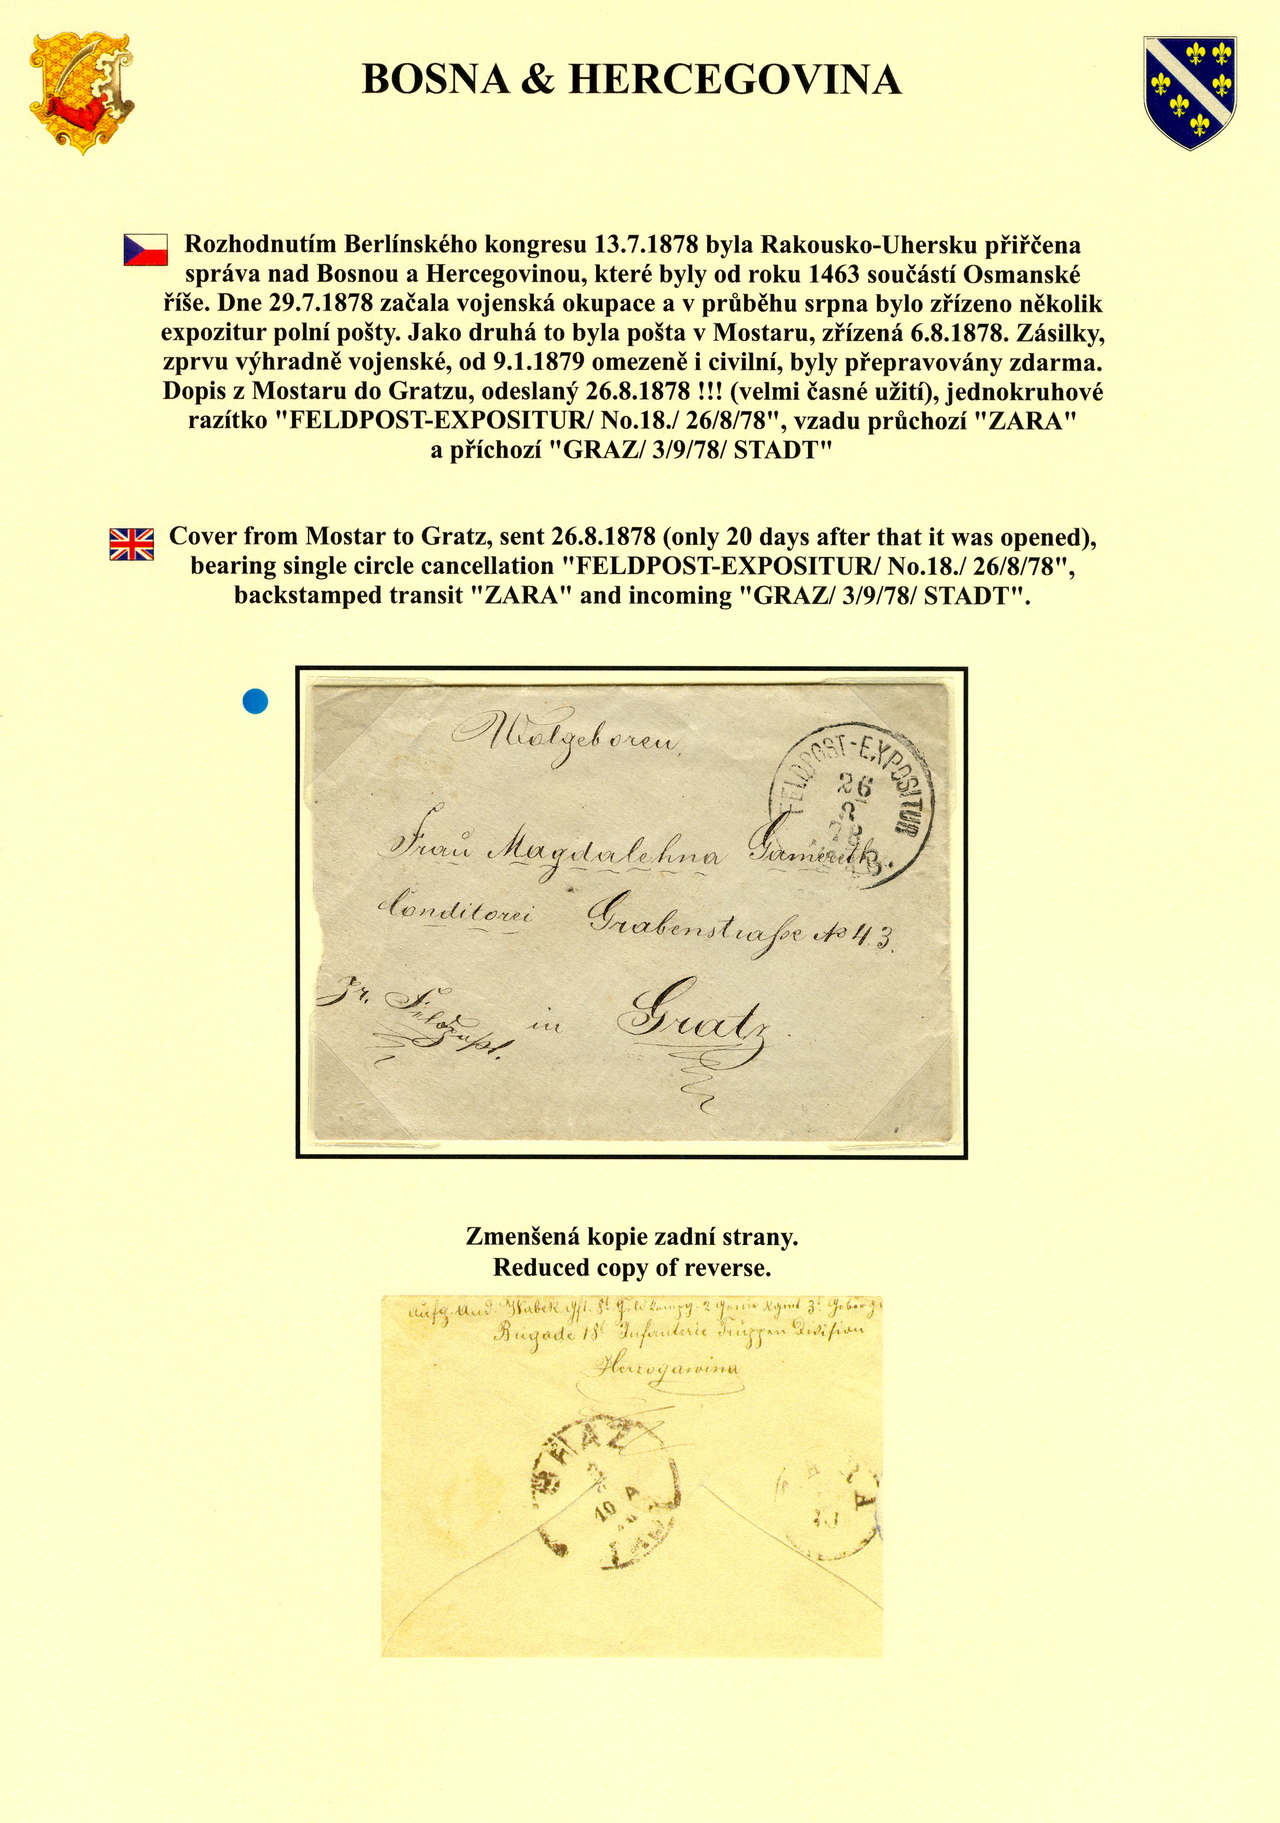 BOSNA & HERCEGOVINA
Rozhodnutím Berlínského kongresu 13.7.1878 byla Rakousko-Uhersku přiřčena
správa nad Bosnou a Hercegovinou, které byly od roku 1463 součástí Osmanské
říše. Dne 29.7.1878 začala vojenská okupace a v průběhu srpna bylo zřízeno několik
expozitur polní pošty. Jako druhá to byla pošta v Mostaru, zřízená 6.8.1878. Zásilky,
zprvu výhradně vojenské, od 9.1.1879 omezeně i civilní, byly přepravovány zdarma.
Dopis z Mostaru do Gratzu, odeslaný 26.8.1878 !!! (velmi časné užití), jednokruhové
razítko "FELDPOST-EXPOSITUR/ No.18./ 26/8/78", vzadu průchozí "ZARA"
a příchozí "GRAZ/ 3/9/78/ STADT"
Cover from Mostar to Gratz, sent 26.8.1878 (only 20 days after that it was opened),
bearing single circle cancellation "FELDPOST-EXPOSITUR/ No.18./ 26/8/78",
backstamped transit "ZARA" and incoming "GRAZ/ 3/9/78/ STADT".
Wolgeboren
FELDPOST-EXPOSITUR
26
8
78
Frau Magdalehna
Conditorei Grabenstraße No 43.
in Gratz
Zmenšená kopie zadní strany.
Reduced copy of reverse.
Brigade 18t Infanterie Truppen Division
Herzogawina
GRAZ
10 A
ZARA